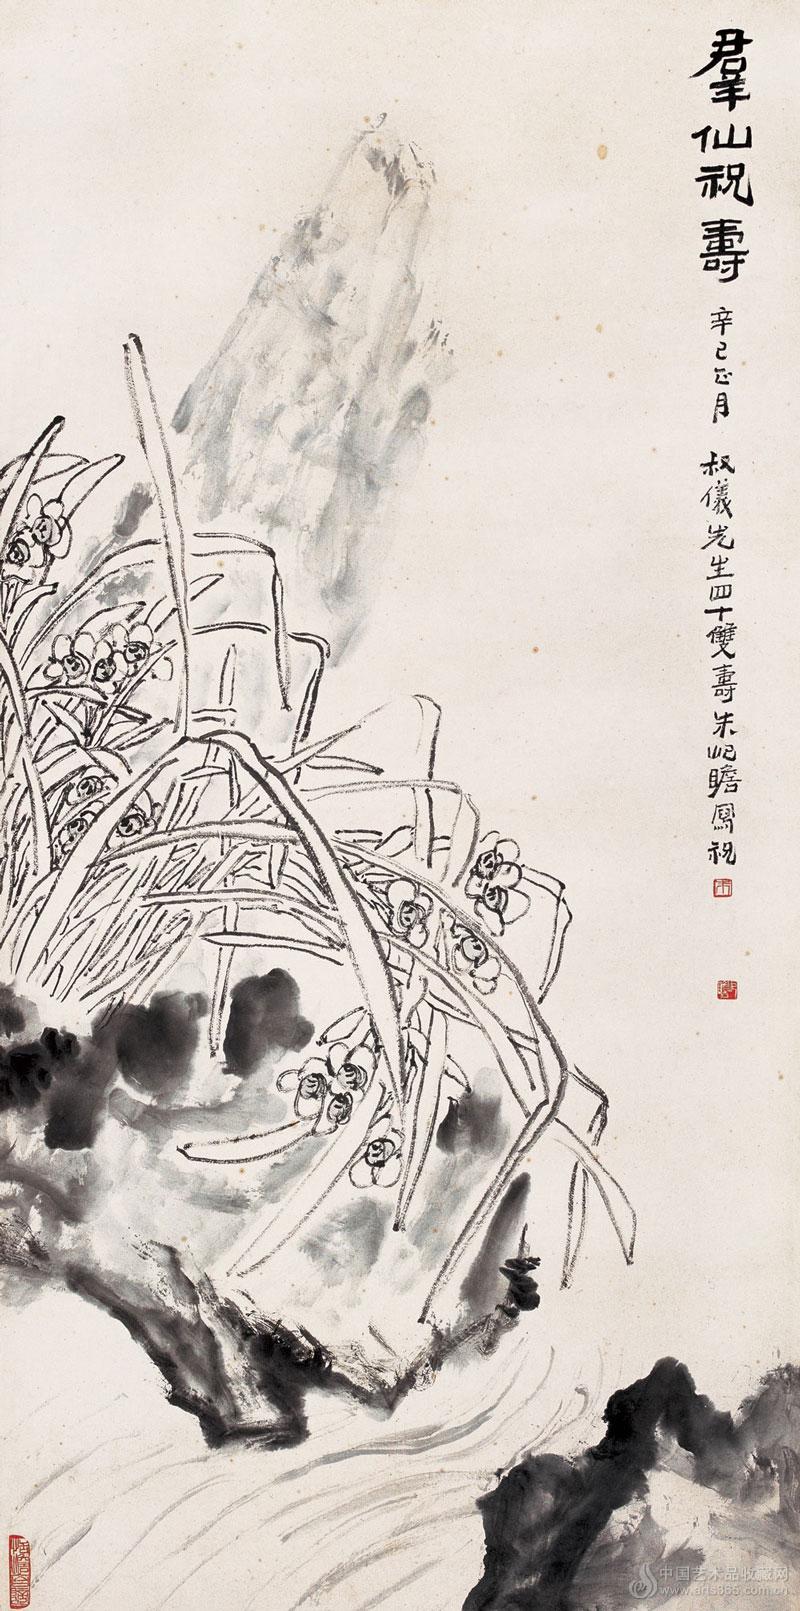 羣仙祝壽
辛巳正月
叔儀先生四十雙壽朱屺瞻寫祝
中国艺术品收藏网
www.arts365.com.cn